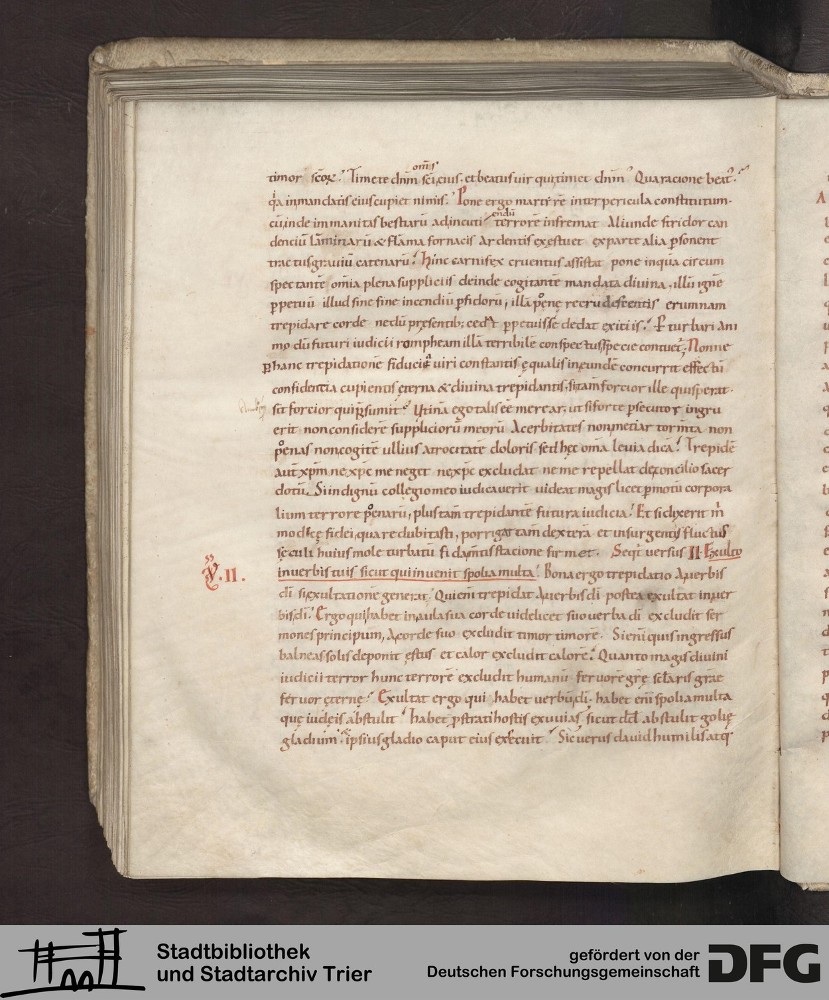 oms
timor scorꝝ. Timete dnm sci eius. et beatus vir qui timet dnm. Qua racione beat.
q̇a in mandatis eius cupiet nimis. Pone ergo martirē inter pericula constitutum.
cū inde immanitas bestiarū ad incuti endū terrorē infremat Aliunde stridor can
denciū laminarū & flāma fornacis Ardentis exestuet ex parte alia psonent
tractus graviū catenarū. hinc carnifex cruentus assistat pone inquā circum
spectantē omia plena suppliciis deinde cogitantē mandata divina, illū ignē
ppetuū illud sine fine incendiū pfidorū, illā penę recrudescentis erumnam
trepidare corde nedū presentib; cedat ppetuis se dedat exitiis. P turbari ani
mo dū futuri iudicii rompheam illā terribilē conspectus specie contuet. Nonne
p hanc trepidationē fiducię viri constantis ęqualis in eundē concurrit effectū
confidentia cupientis ęterna & divina trepidantis. sit tam forcior ille qui sperat.
sit forcior qui psumit. Utinā ego talis eē merear, ut si forte psecutor ingru
erit non considerē suppliciorū meorū Acerbitates non metiar tormta non
penas non cogitē ullius atrocitatē doloris sed hęc oma levia dicā. Trepidē
aut xpm ne xpc me neget ne xpc excludat ne me repellat de concilio sacer
dotū. Si indignū collegio meo iudicaverit videat magis licet pmotū corpora
lium terrore penarū, plus tam trepidantē futura iudicia. Et si dixerit m
modicę fidei, quare dubitasti, porrigat tam dexterā et insurgentis fluctus
sęculi huius mole turbatū fidamtis stacione firmet. Seqt versus II Exulto
Ꝟ. II.
in verbis tuis sicut qui invenit spolia multa. Bona ergo trepidatio A verbis
di si exultationē generat. Qui enī trepidat A verbis di postea exultat in ver
bis di. Ergo qui habet in aula sua corde videlicet suo verba di excludit ser
mones principum, A corde suo excludit timor timorē. Si enī quis ingressus
balneas solis deponit ęstus et calor excludit calorē. Quanto magis divini
iudicii terror hunc terrorē excludit humanū fervorē grę sclaris grae
fervor ęternę. Exultat ergo qui habet verbū di. habet enī spolia multa
quę iudęis abstulit. habet pstrati hostis exuvias, sicut dd abstulit golię
gladium. ipsius gladio caput eius execuit. Sic verus david humilis atq
Stadtbibliothek
und Stadtarchiv Trier
gefördert von der
Deutschen Forschungsgemeinschaft
DFG